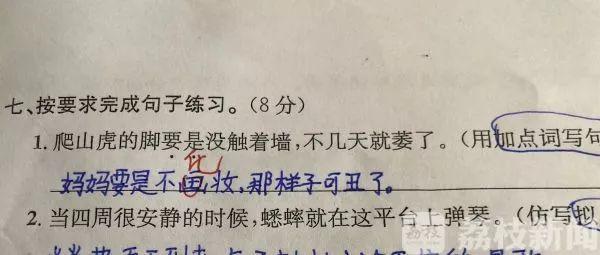 七、按要求完成句子练习。(8分)
1. 爬山虎的脚要是没触着墙,不几天就萎了。(用加点词写句
化
妈妈要是不画妆,那样子可丑了。
2. 当四周很安静的时候,蟋蟀就在这平台上弹琴。(仿写拟
荔枝 荔枝新闻